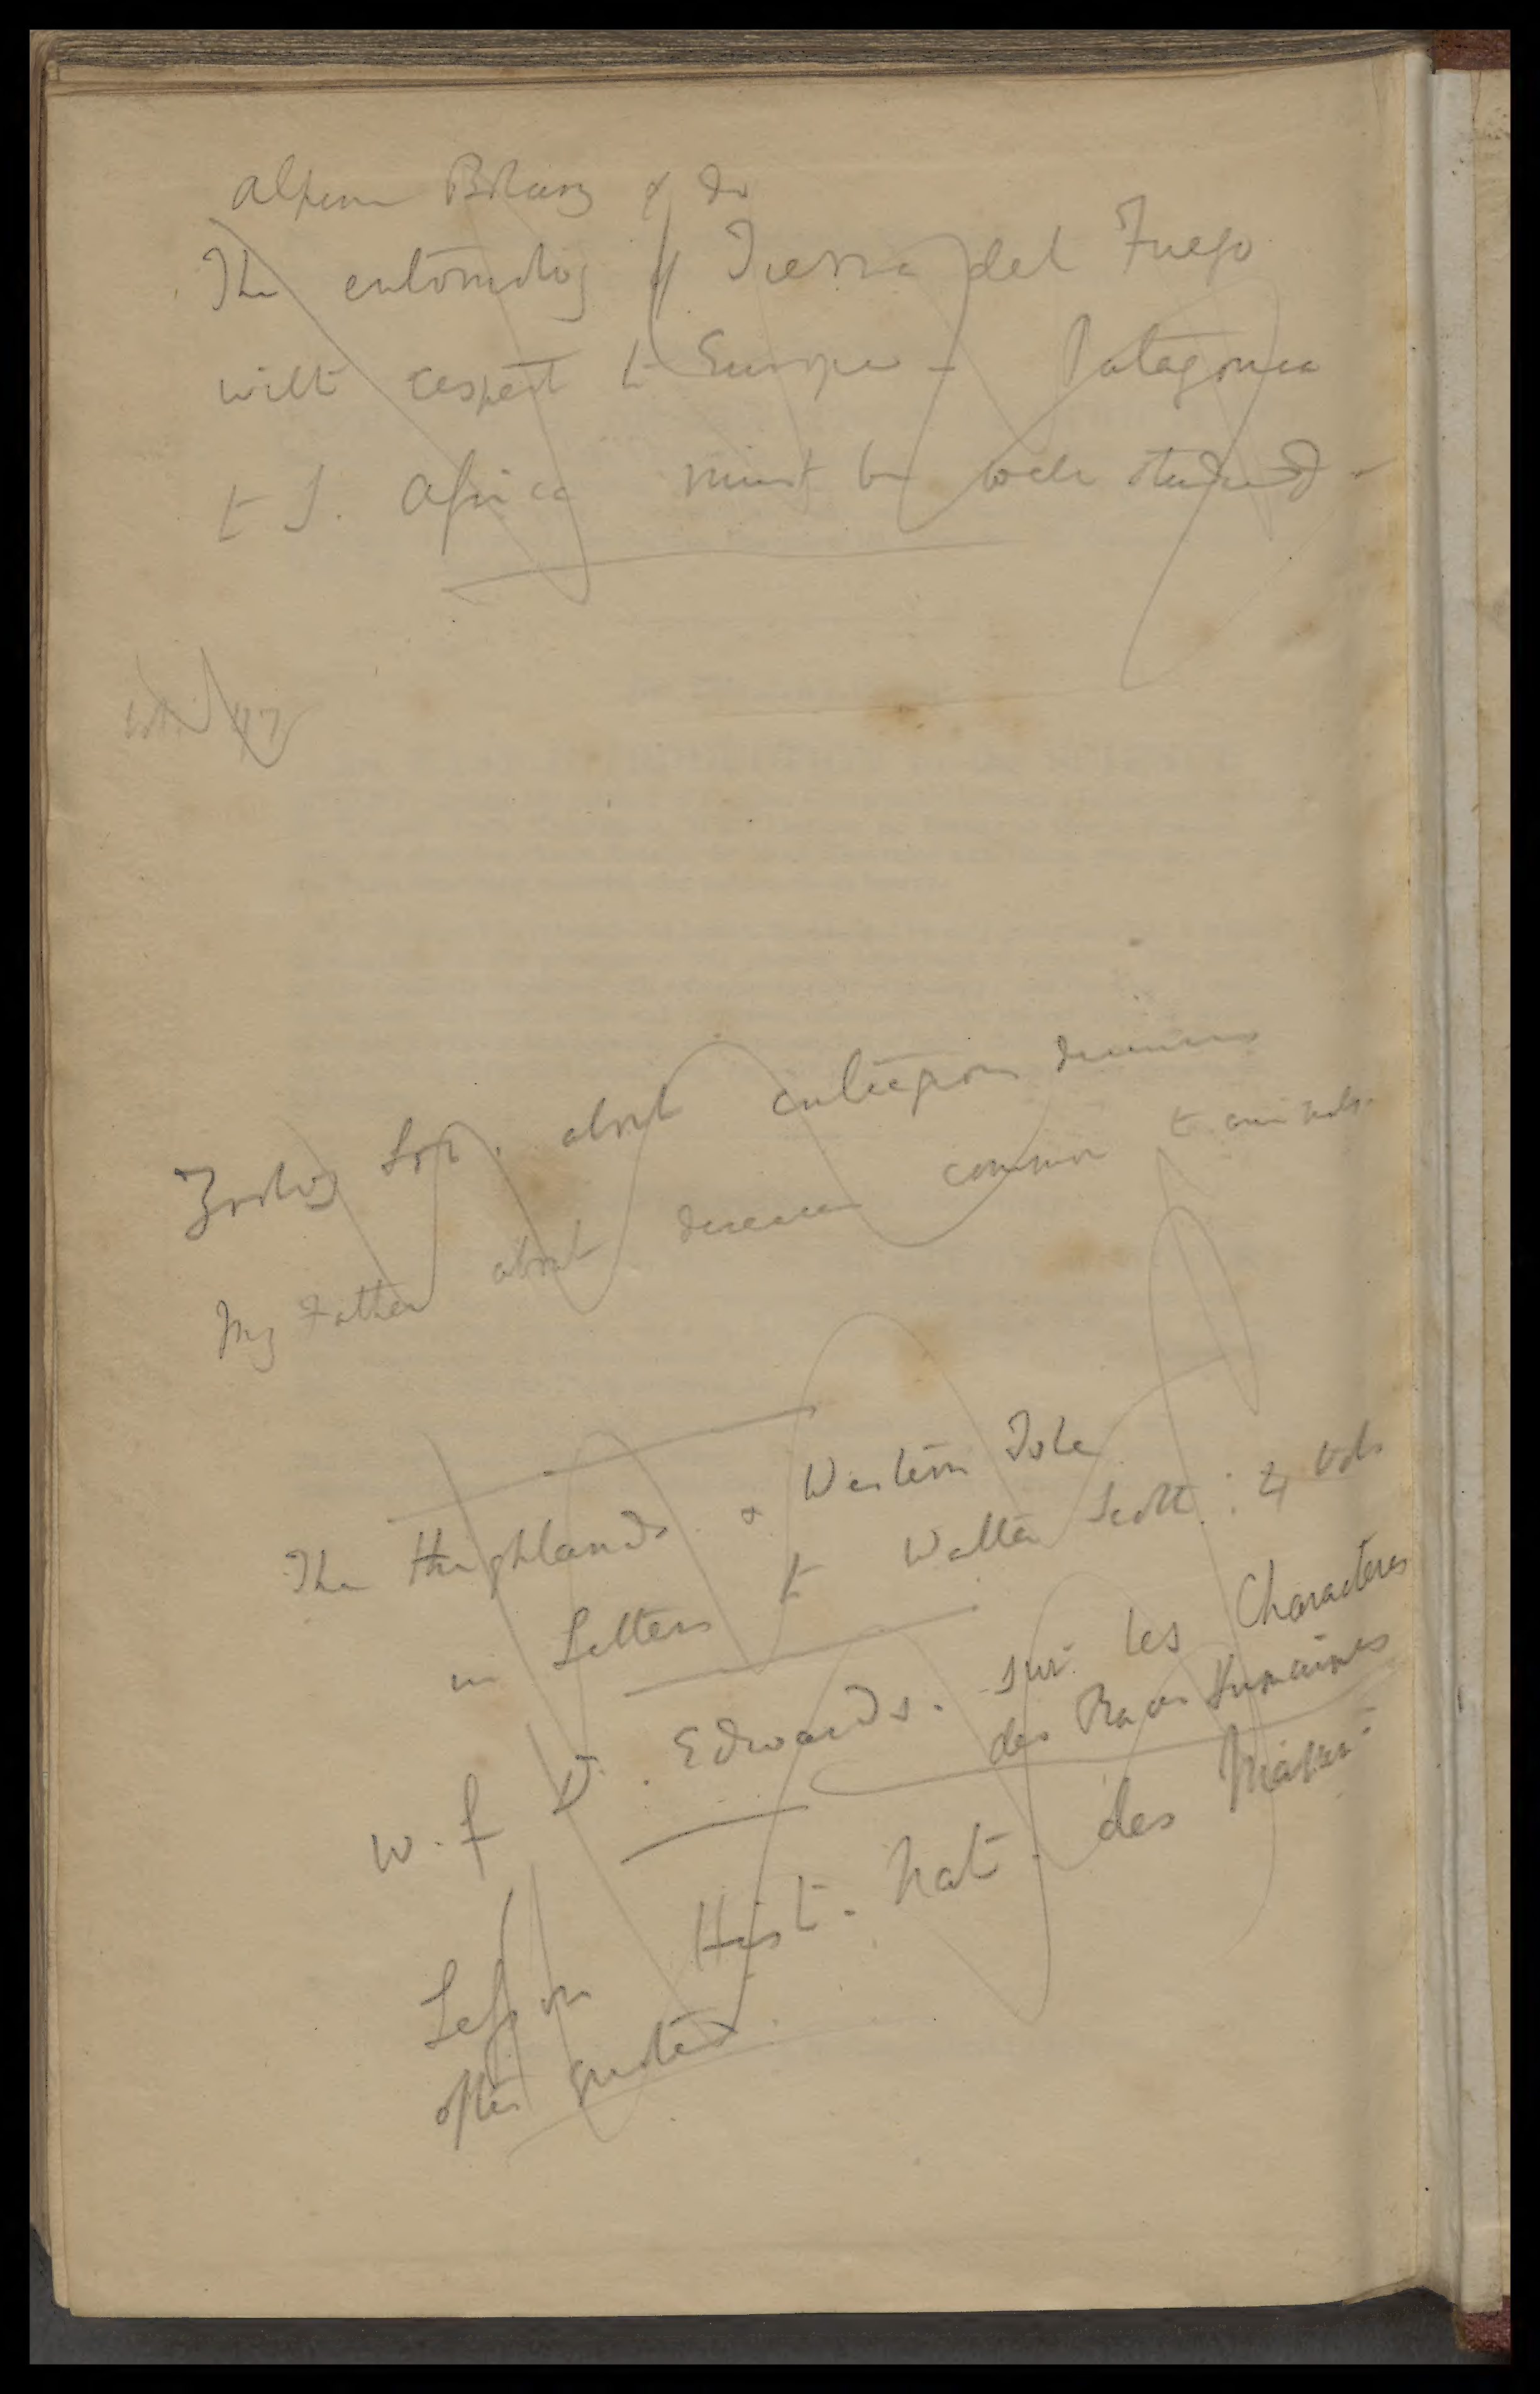 Alpine Botany of do
The entomology of Tierra del Fuego
with respect to Europe – Patagonia
to S. Africa must be well studied –
Zoolog Soc. about diseases
My Father about diseases common to animals.
The Highlands & Western Isle
in Letters to Walter Scott: 4 Vols
W. F Dr. Edwards. sur les Characteres
des Races Humaines
Lesson Hist. Nat. des
often quoted